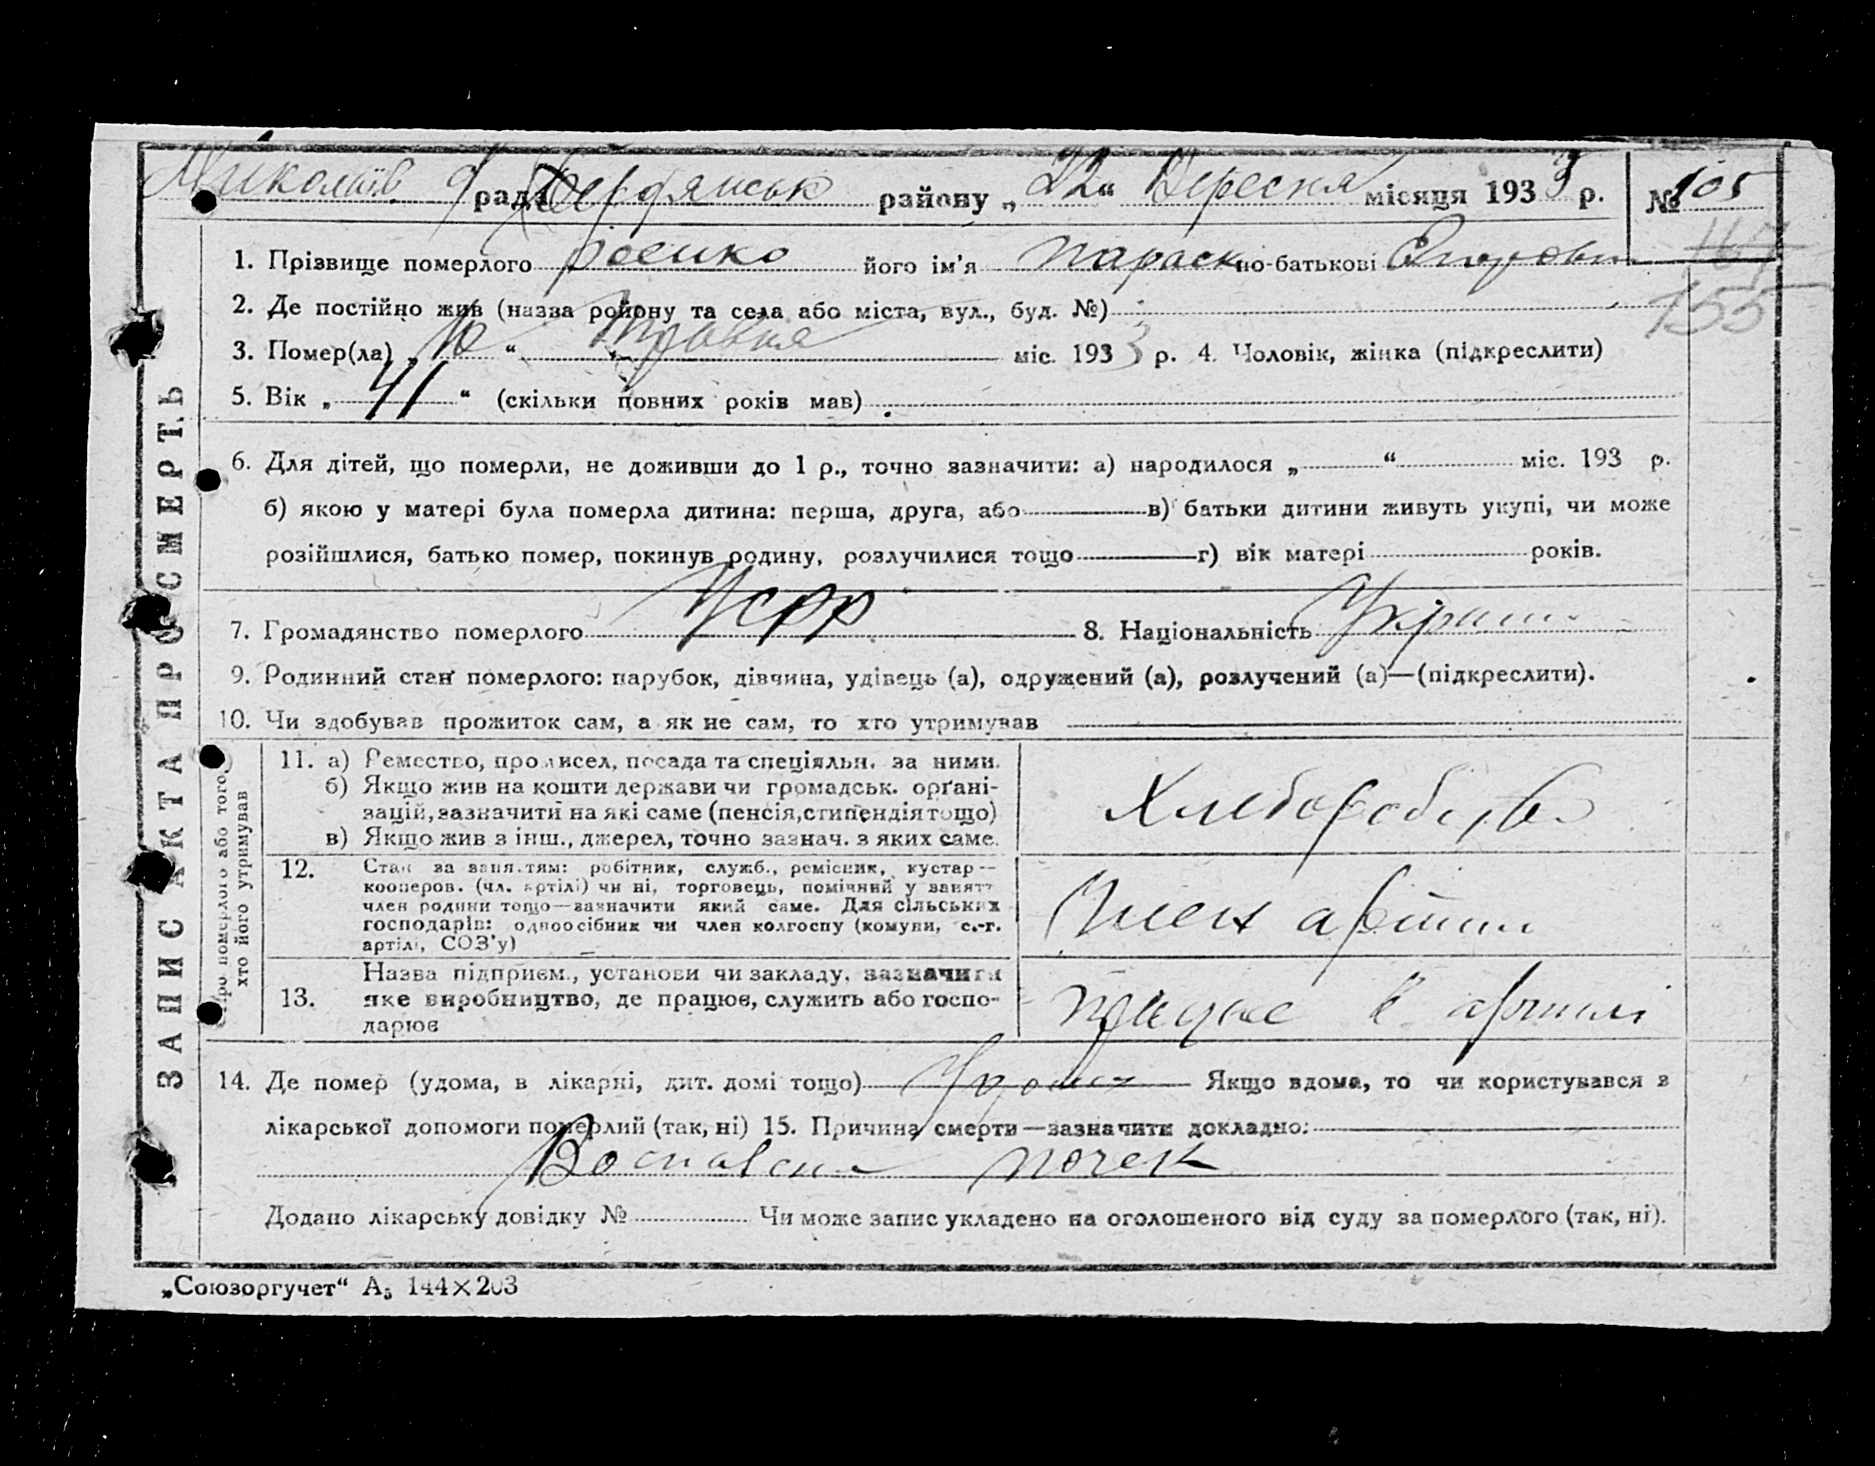 Миколаїв. с/рада Бердянськ району „22“ Вересня місяця 1933 р. № 105
167
155
1. Прізвище померлого його ім'я Параск по-батькові Егоровн
2. Де постійно жив (назва району та села або міста, вул., буд. №)
3. Помер(ла) „10“ травня міс. 1933 р. 4. Чоловік, жінка (підкреслити)
5. Вік „41“ (скільки повних років мав)
6. Для дітей, що померли, не доживши до 1 р., точно зазначити: а) народилося „ “ міс. 193 р.
б) якою у матері була померла дитина: перша, друга, або в) батьки дитини живуть укупі, чи може
розійшлися, батько помер, покинув родину, розлучилися тощо г) вік матері років.
7. Громадянство померлого УСРР 8. Національність Україн
9. Родинний стан померлого: парубок, дівчина, удівець (а), одружений (а), розлучений (а)—(підкреслити).
10. Чи здобував прожиток сам, а як не сам, то хто утримував
ЗАПИС АКТА ПРО СМЕРТЬ
Про померлого або того,
хто його утримував
11. а) Ремество, промисел, посада та спеціяльн. за ними.
б) Якщо жив на кошти держави чи громадськ. орґані-
зацій, зазначити на які саме (пенсія, стипендія тощо)
в) Якщо жив з інш., джерел, точно зазнач. з яких саме.
Хлеборобство
12. Стан за занятям: робітник, служб., ремісник, кустар—
кооперов. (чл. артілі) чи ні, торговець, помічний у занятт
член родини тощо—зазначити який саме. Для сільських
господарів: одноосібник чи член колгоспу (комуни, с.-г.
артілі, СОЗ'у)
Член артили
13. Назва підприєм., установи чи закладу, зазначити
яке виробництво, де працює, служить або госпо-
дарює
працює в артилі
14. Де помер (удома, в лікарні, дит. домі тощо) Удома Якщо вдома, то чи користувався з
лікарської допомоги померлий (так, ні) 15. Причина смерти—зазначити докладно:
Воспаление почек
Додано лікарську довідку № Чи може запис укладено на оголошеного від суду за померлого (так, ні).
„Союзоргучет“ А5 144×203